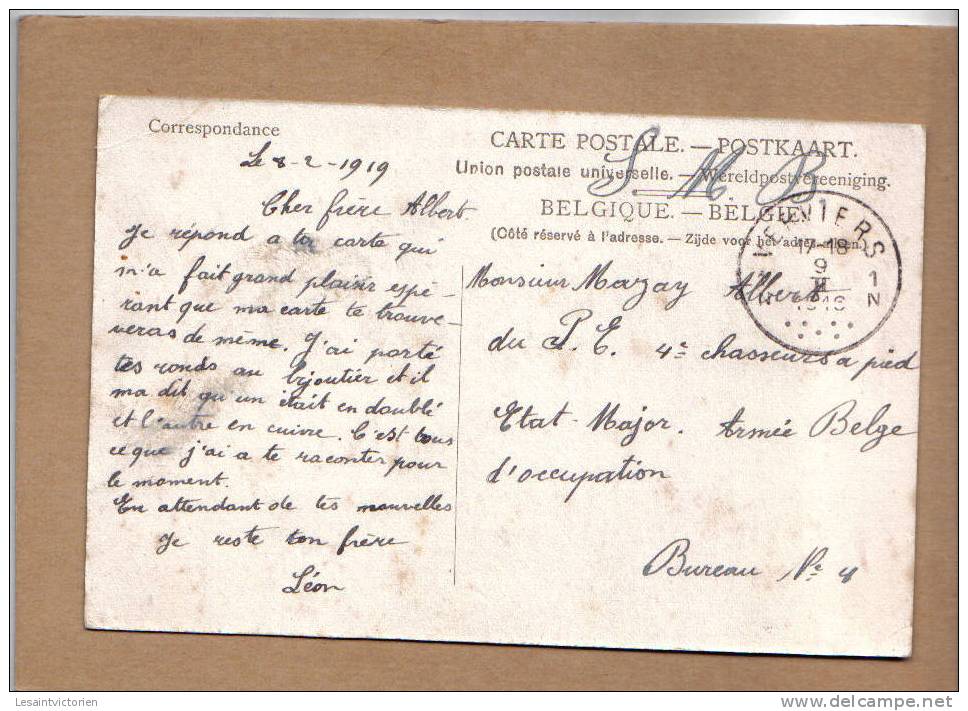 Correspondance
Le 8-2-1919
Cher frère Albert
Je répond a ta carte qui
m'a fait grand plaisir espé-
rant que ma carte te trouve-
veras de même. J'ai porté
tes ronds au bijoutier et il
ma dit qu'un était en doublé
et l'autre en cuivre. C'est tous
ce que j'ai a te raconter pour
le moment.
En attendant de tes nouvelles
Je reste ton frère
Léon
CARTE POSTALE. — POSTKAART.
Union postale universelle. — Wereldpostvereeniging.
S. M. B
BELGIQUE. — BELGIEN
(Côté réservé à l'adresse. — Zijde voor het adres alleen.)
VERVIERS
17-18
9
II
1
N
Monsieur Mazay Albert
du P. E. 4e chasseurs a pied
Etat-Major. Armée Belge
d'occupation
Bureau No 4
Lesaintvictorien
delcampe.net